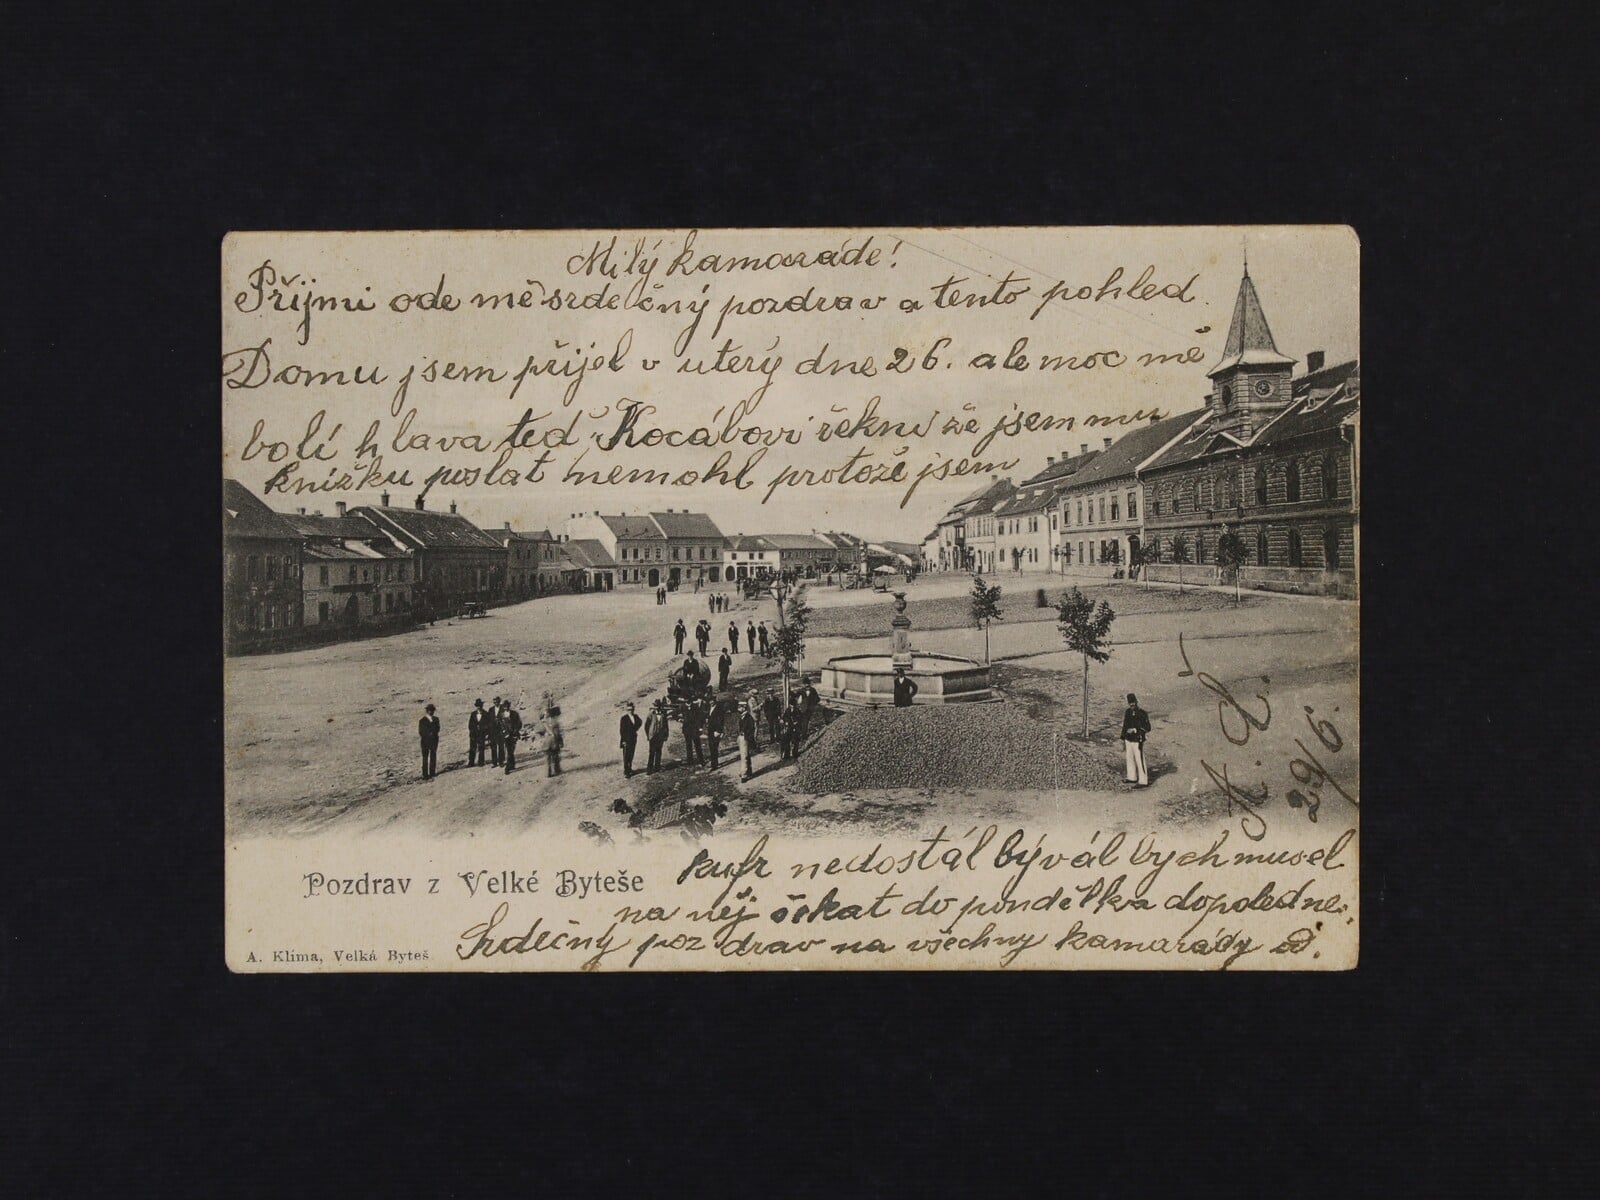 Milý kamaráde!
Přijmi ode mě srdečný pozdrav a tento pohled.
Domu jsem přijel v uterý dne 26. ale moc mě
bolí hlava teď Kocábovi řekni že jsem mu
knížku poslat nemohl protože jsem
kufr nedostál bývál bych musel
na něj čekat do pondělka dopoledne.
Srdečný pozdrav na všechny kamarády
29/6.
Pozdrav z Velké Byteše
A. Klíma, Velká Byteš